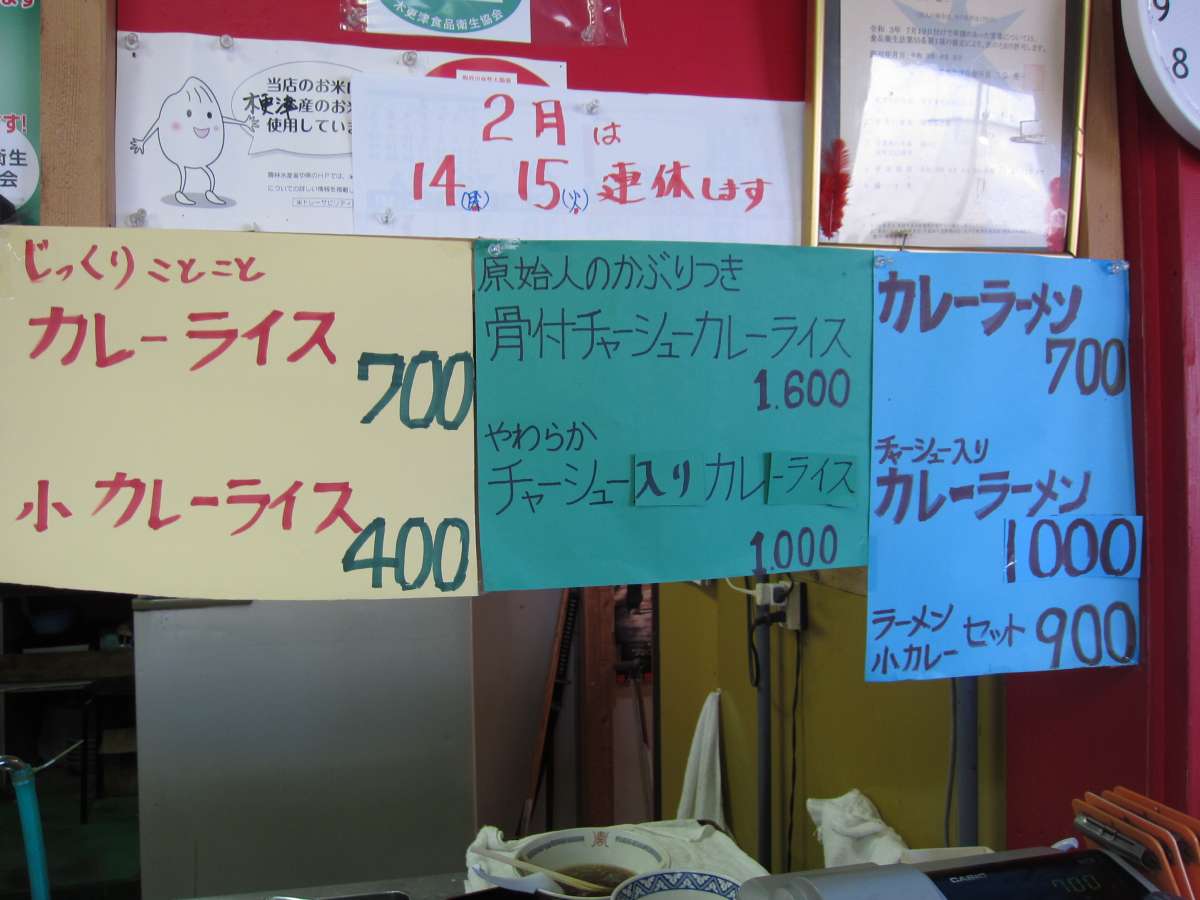 木更津食品衛生協会
当店のお米は
木更津産のお米
使用していま
2月は
14(月) 15(火) 連休します
9
8
じっくりことこと
カレーライス
700
小カレーライス
400
原始人のかぶりつき
骨付チャーシューカレーライス
1.600
やわらか
チャーシュー入りカレーライス
1.000
カレーラーメン
700
チャーシュー入り
カレーラーメン
1000
ラーメン
小カレー セット 900
CASIO
700